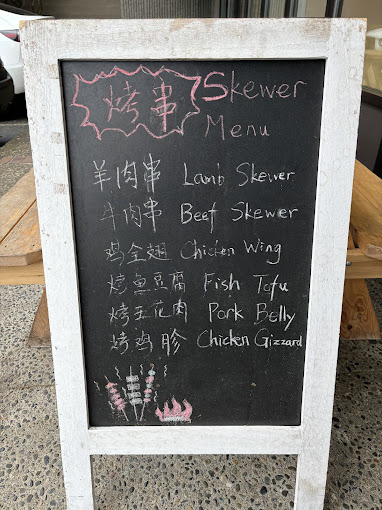 烤串 Skewer
Menu
羊肉串 Lamb Skewer
牛肉串 Beef Skewer
鸡全翅 Chicken Wing
烤鱼豆腐 Fish Tofu
烤五花肉 Pork Belly
烤鸡胗 Chicken Gizzard